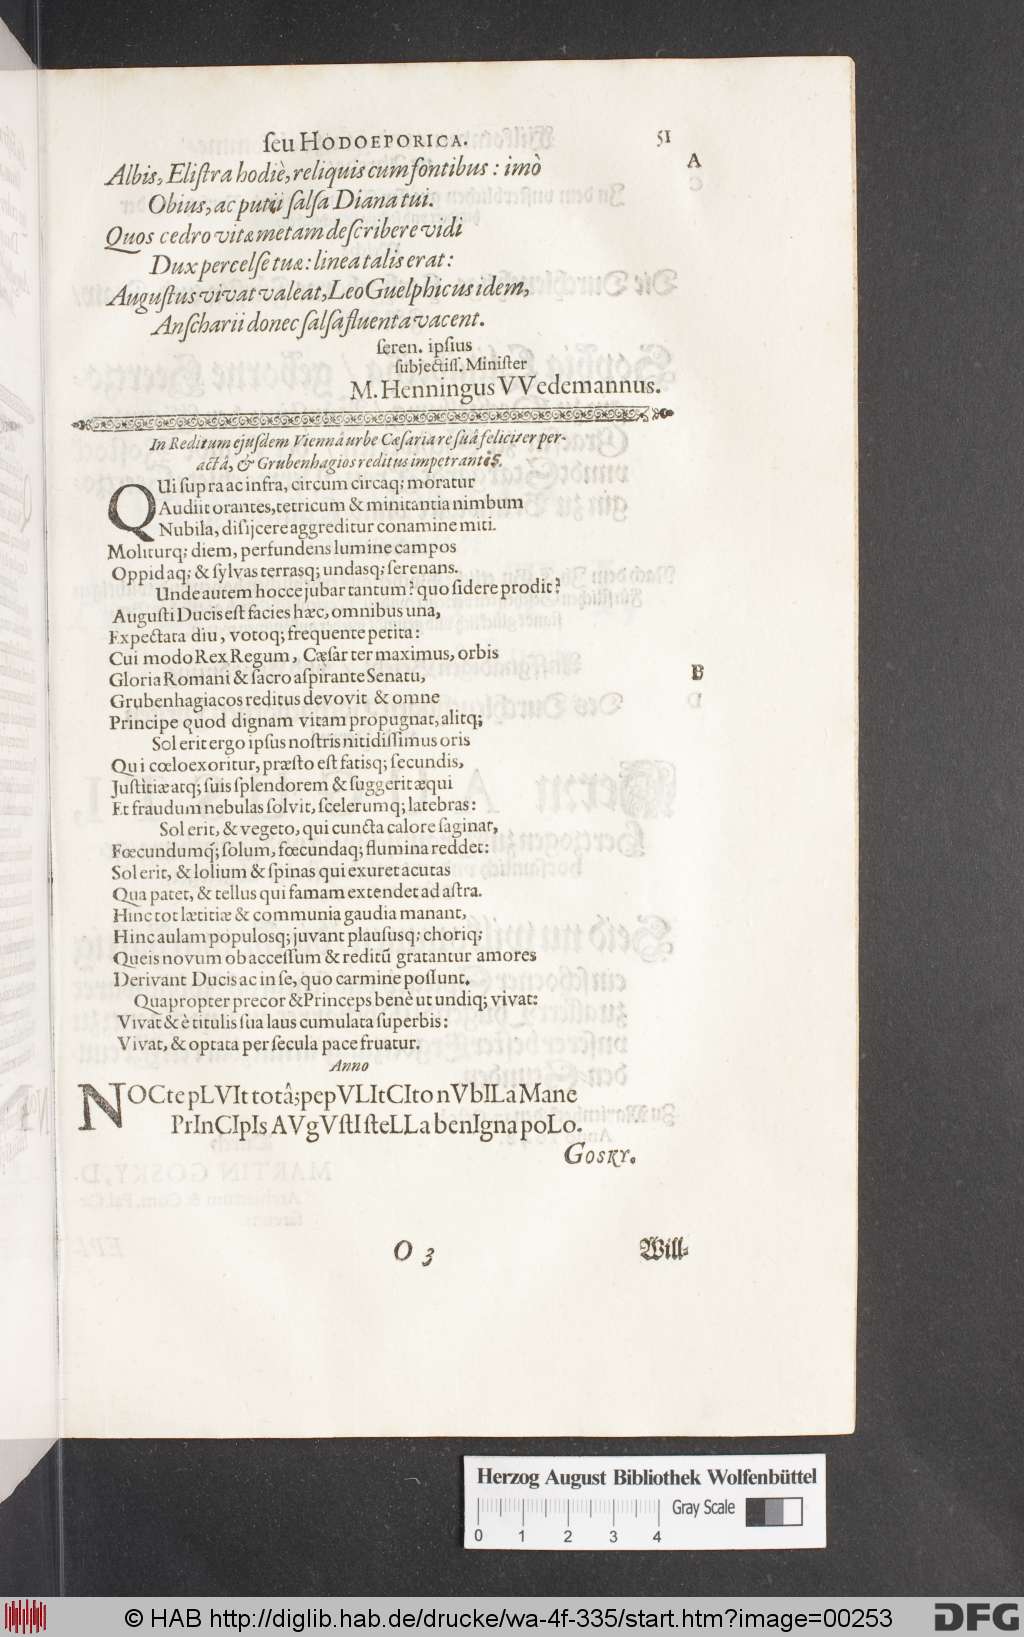 ſeu HODOEPORICA. 51
Albis, Eliſtra hodiè, reliquis cum fontibus: imò A
Obius, ac putii ſalſa Diana tui.
Quos cedro vitæ metam deſcribere vidi
Dux percelſe tuæ: linea talis erat:
Auguſtus vivat valeat, Leo Guelphicus idem,
Anſcharii donec ſalſa fluenta vacent.
ſeren. ipſius
ſubjectiſſ. Miniſter
M. Henningus VVedemannus.
In Reditum ejuſdem Viennâ urbe Cæſaria re ſuâ feliciter per-
actâ, & Grubenhagios reditus impetrantis.
QUi ſupra ac infra, circum circaq; moratur
Audiit orantes, tetricum & minitantia nimbum
Nubila, diſijcere aggreditur conamine miti.
Moliturq; diem, perfundens lumine campos
Oppidaq; & ſylvas terrasq; undasq; ſerenans.
Unde autem hocce jubar tantum? quo ſidere prodit?
Auguſti Ducis eſt facies hæc, omnibus una,
Expectata diu, votoq; frequente petita:
Cui modo Rex Regum, Cæſar ter maximus, orbis
Gloria Romani & ſacro aſpirante Senatu, B
Grubenhagiacos reditus devovit & omne
Principe quod dignam vitam propugnat, alitq;
Sol erit ergo ipſus noſtris nitidiſſimus oris
Qui cœlo exoritur, præſto eſt fatisq; ſecundis,
Juſtitiæ atq; ſuis ſplendorem & ſuggerit æqui
Et fraudum nebulas ſolvit, ſcelerumq; latebras:
Sol erit, & vegeto, qui cuncta calore ſaginat,
Fœcundumq; ſolum, fœcundaq; flumina reddet:
Sol erit, & lolium & ſpinas qui exuret acutas
Qua patet, & tellus qui famam extendet ad aſtra.
Hinc tot lætitiæ & communia gaudia manant,
Hinc aulam populosq; juvant plauſusq; choriq;
Queis novum ob acceſſum & reditū gratantur amores
Derivant Ducis ac in ſe, quo carmine poſſunt.
Quapropter precor & Princeps benè ut undiq; vivat:
Vivat & è titulis ſua laus cumulata ſuperbis:
Vivat, & optata per ſecula pace fruatur.
Anno
NOCte pLVIt totâ; pepVLIt CIto nVbILa Mane
PrInCIpIs AVgVſtI ſteLLa benIgna poLo.
GOSKY.
O 3 Will-
Herzog August Bibliothek Wolfenbüttel
Gray Scale
0 1 2 3 4
© HAB http://diglib.hab.de/drucke/wa-4f-335/start.htm?image=00253 DFG